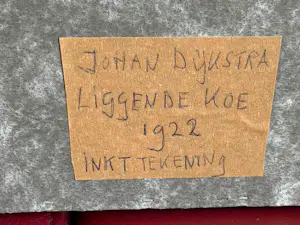 JOHAN DIJKSTRA
LIGGENDE KOE
1922
INKT TEKENING